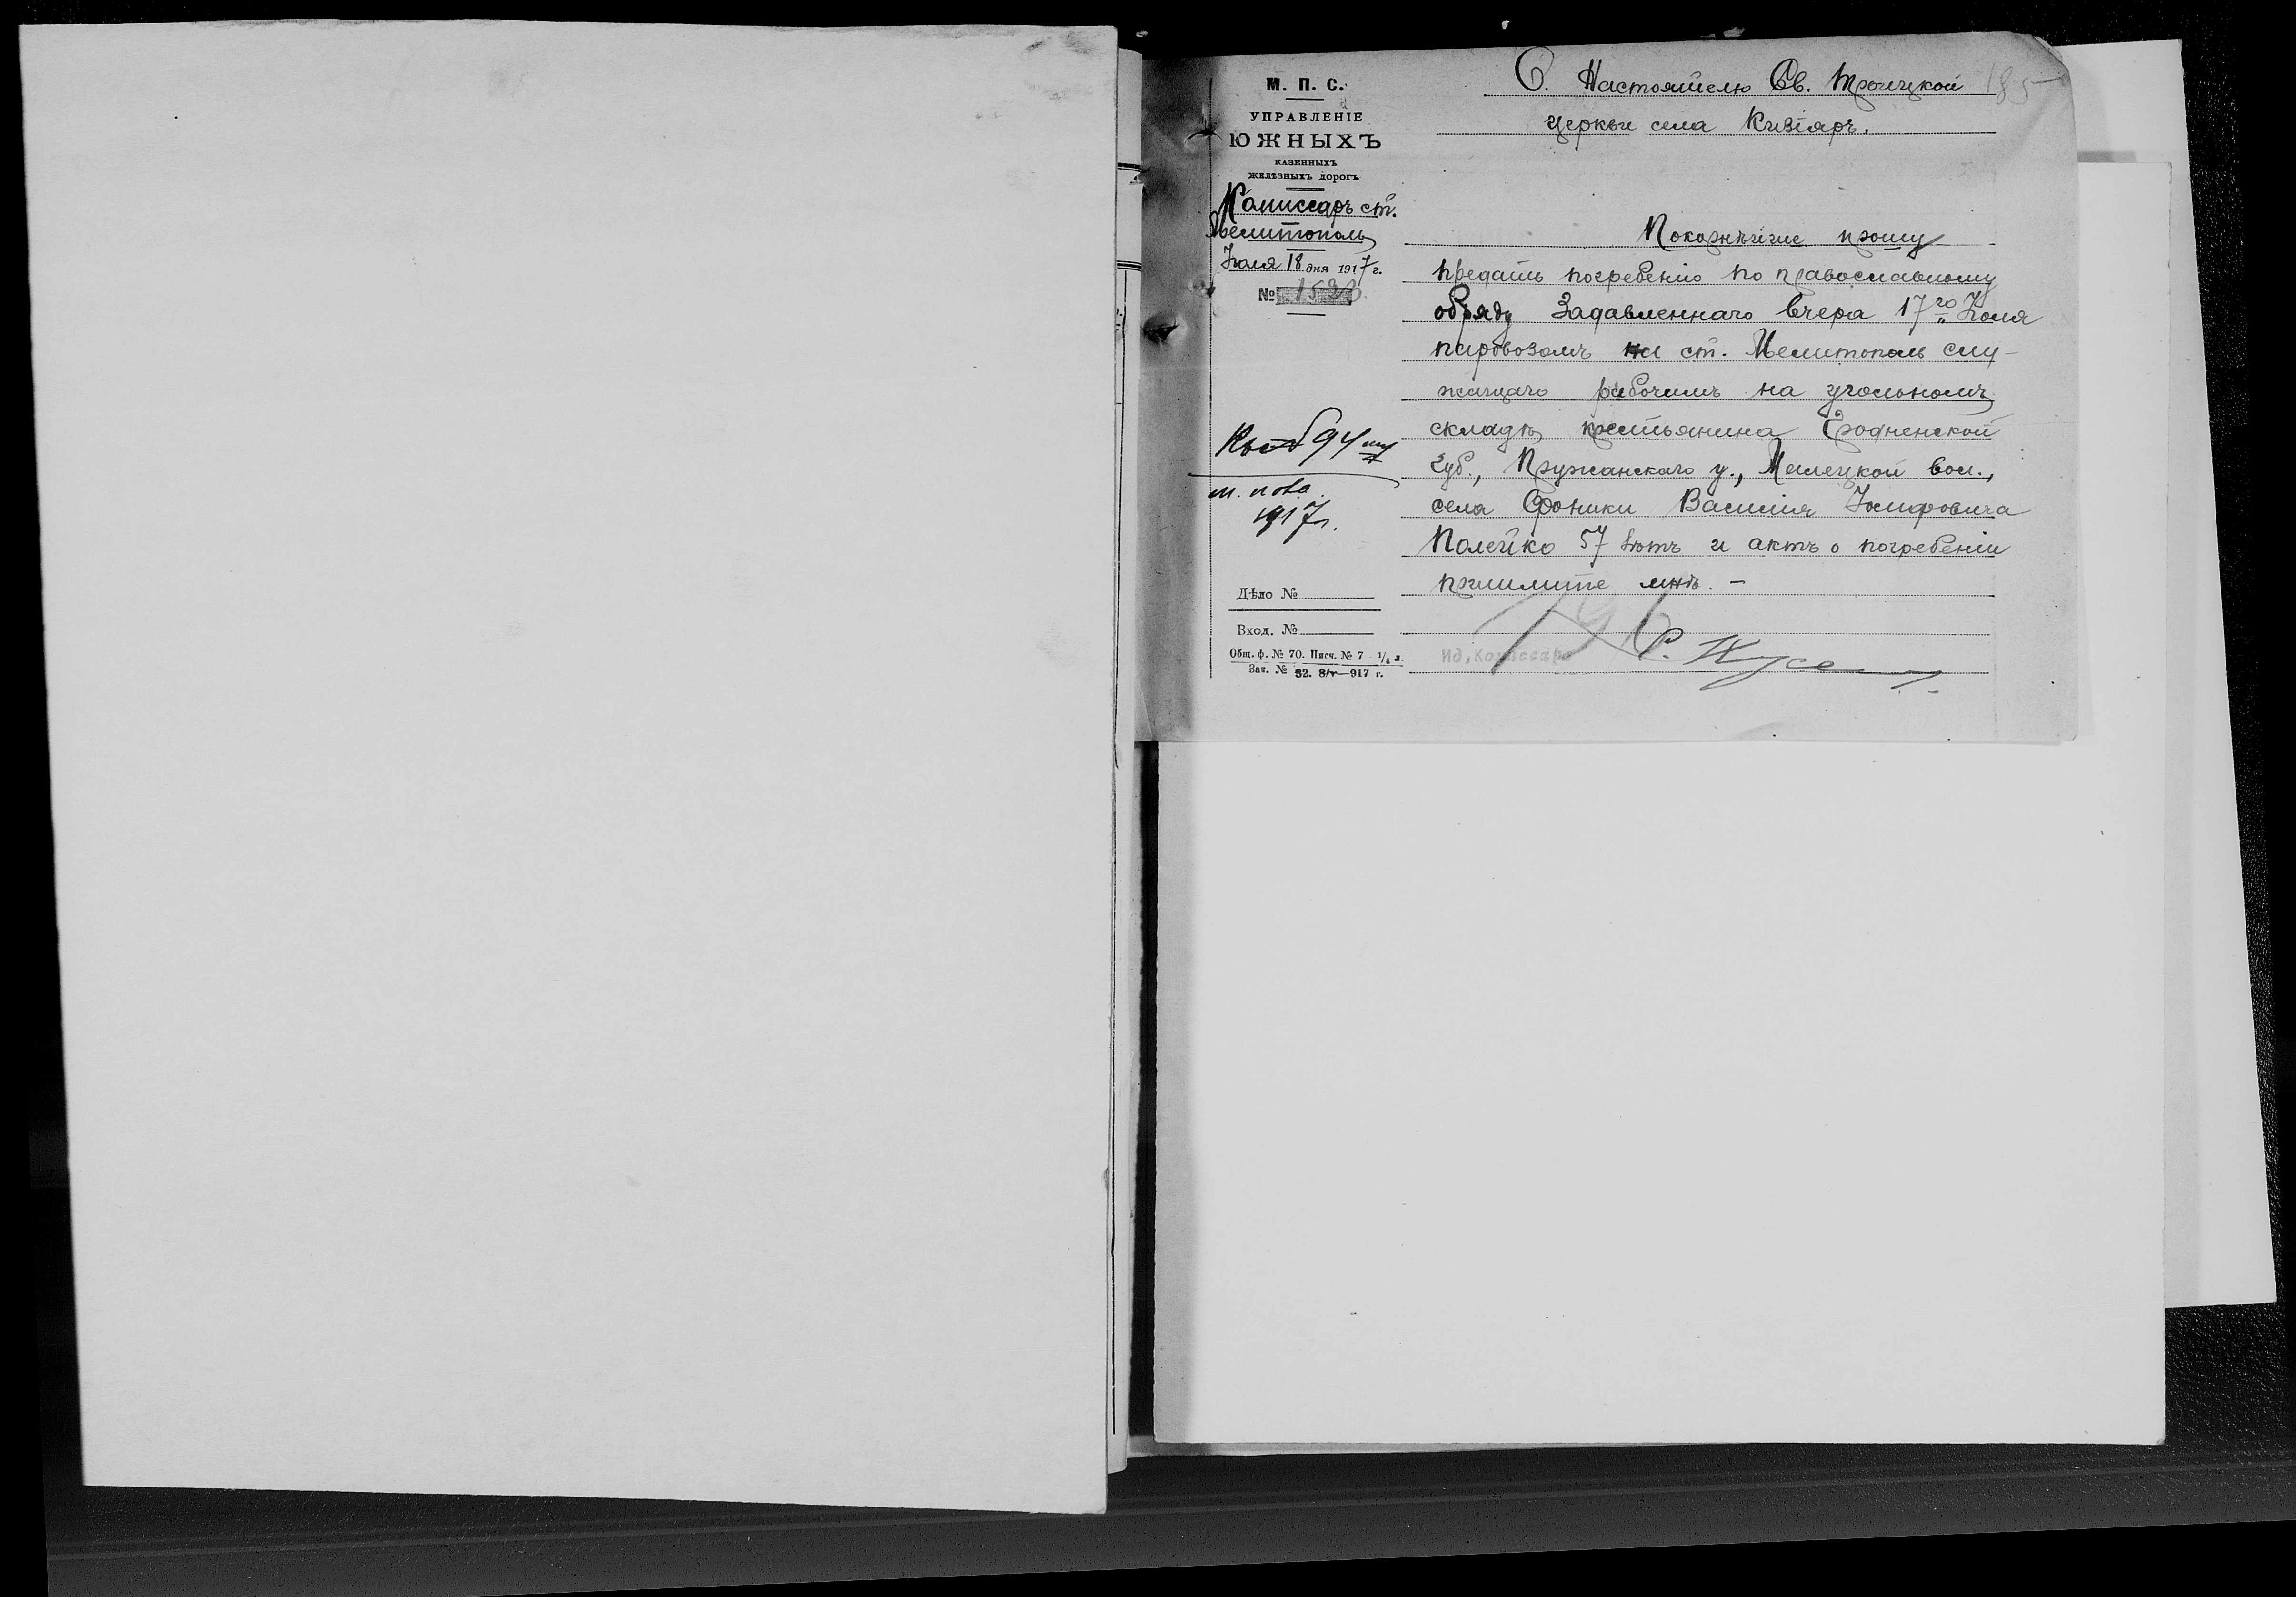 М. П. С.
УПРАВЛЕНІЕ
ЮЖНЫХЪ
КАЗЕННЫХЪ
ЖЕЛѢЗНЫХЪ ДОРОГЪ
Комиссаръ ст.
Мелитополь
Іюля 18 дня 1917 г.
№
1917г.
Дѣло №
Вход. №
Общ. ф. № 70. Писч. № 7 – 1/4 л.
Зак. № 32. 8/v—917 г.
185
О. Настоятелю Св. Троицкой
церкви села Кизіяръ.
Покорнѣйше прошу
предать погребенію по православному
обряду Задавленнаго вчера 17го Іюля
паровозомъ на ст. Мелитополь слу-
жащаго рабочимъ на угольномъ
складѣ крестьянина Гродненской
Губ., Пружанскаго у., Малецкой вол.,
села Фоники Василія Іосифовича
Полейко 57 лѣтъ и актъ о погребеніи
пришлите мнѣ. –
Ид. Комиссара